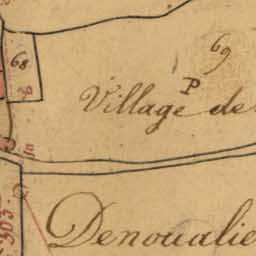 69
68
P
Village de
303.
Denoualie